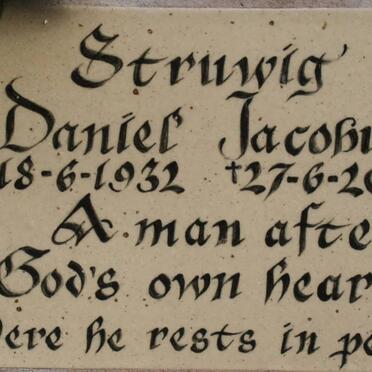 Struwig
Daniel Jacobu
18-6-1932 †27-6-20
A man afte
God's own hear
Here he rests in pe